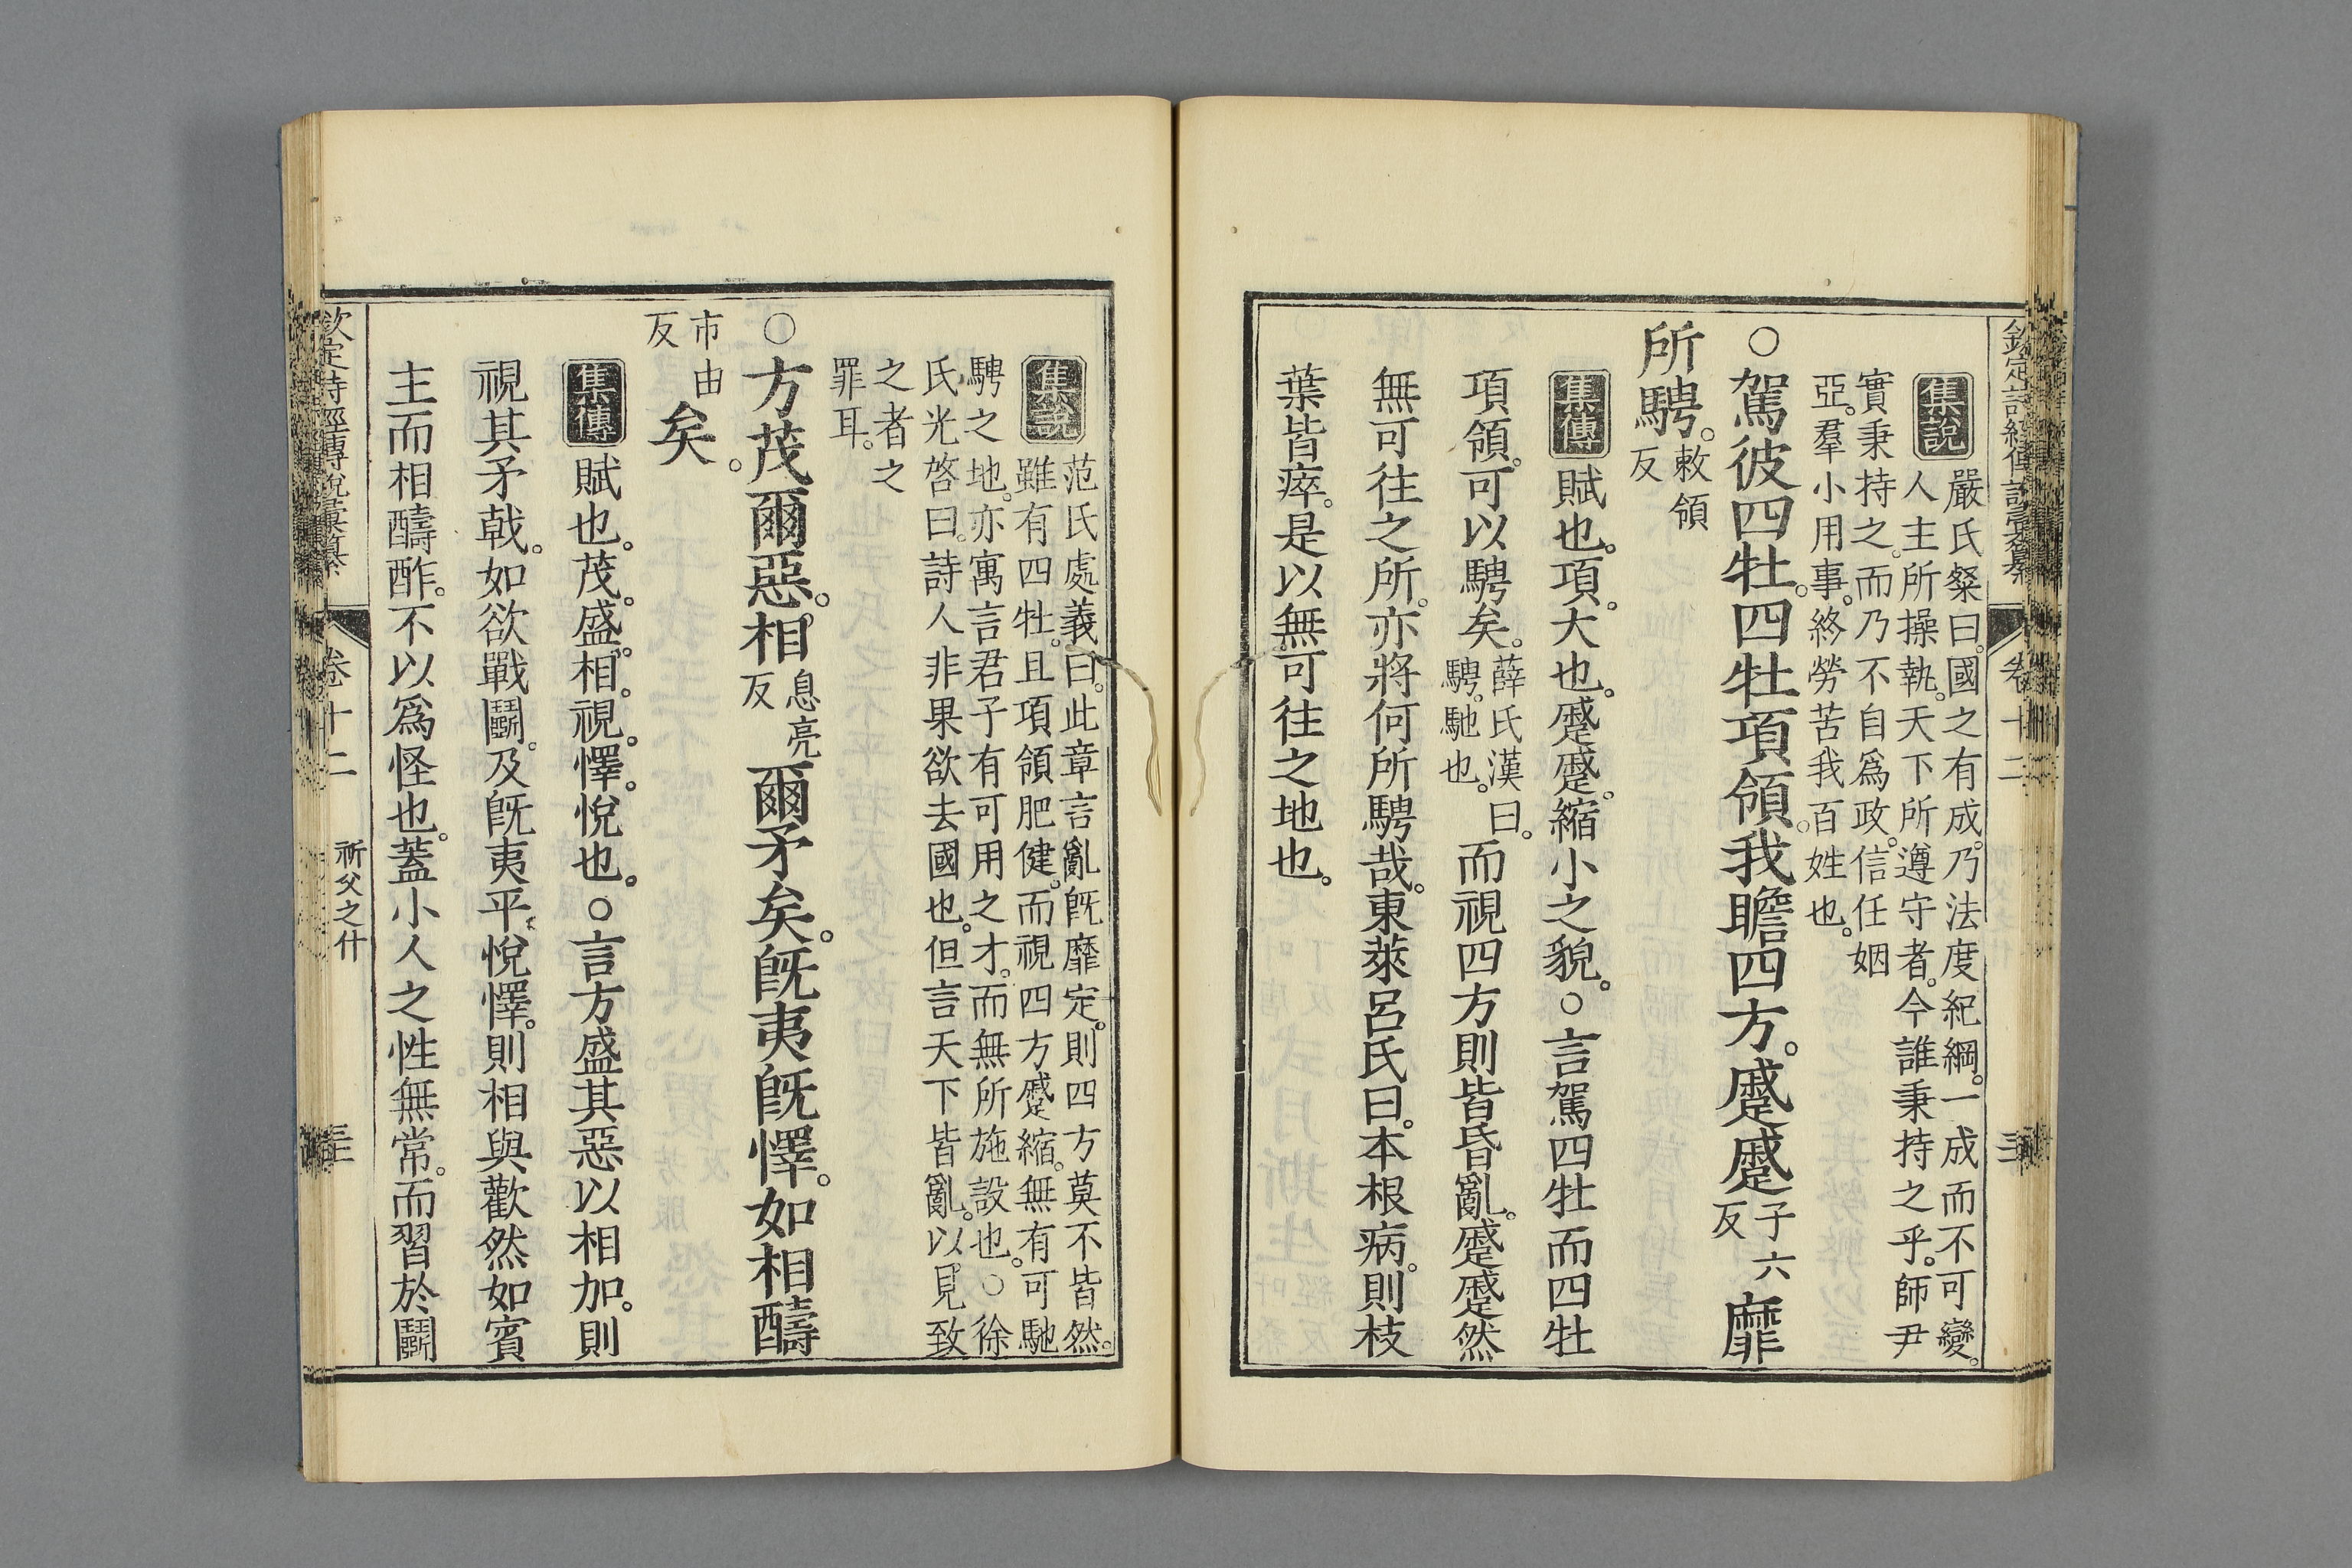 集說
嚴氏粲曰。國之有成。乃法度紀綱。一成而不可變。
人主所操執。天下所遵守者。今誰秉持之乎。師尹
實秉持之。而乃不自爲政。信任姻
亞。羣小用事。終勞苦我百姓也。
○駕彼四牡。四牡項領。我瞻四方。蹙蹙子六反靡
所騁。敕領反
集傳
賦也。項。大也。蹙蹙。縮小之貌。○言駕四牡而四牡
項領。可以騁矣。薛氏漢曰。騁。馳也。而視四方則皆昏亂。蹙蹙然
無可往之所。亦將何所騁哉。東萊呂氏曰。本根病。則枝
葉皆瘁。是以無可往之地也。
集說
范氏處義曰。此章言亂旣靡定。則四方莫不皆然。
雖有四牡。且項領肥健。而視四方蹙縮。無有可馳
騁之地。亦寓言君子有可用之才。而無所施設也。○徐
氏光啓曰。詩人非果欲去國也。但言天下皆亂。以見致
之者之
罪耳。
○方茂爾惡。相息亮反爾矛矣。旣夷旣懌。如相醻
市由反矣。
集傳
賦也。茂。盛。相。視。懌。悅也。○言方盛其惡以相加。則
視其矛戟。如欲戰鬭。及旣夷平悅懌。則相與歡然如賓
主而相醻酢。不以爲怪也。蓋小人之性無常。而習於鬭
欽定詩經傳說彙纂
卷十二
祈父之什